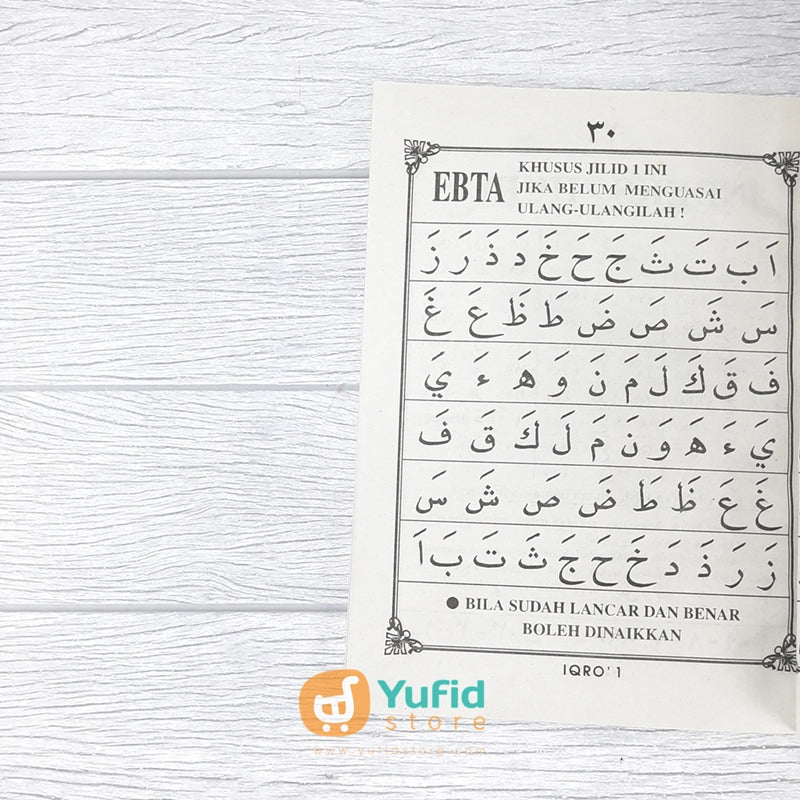 ٣٠
EBTA
KHUSUS JILID 1 INI
JIKA BELUM MENGUASAI
ULANG-ULANGILAH !
اَ بَ تَ ثَ جَ حَ خَ دَ ذَ رَ زَ
سَ شَ صَ ضَ طَ ظَ عَ غَ
فَ قَ كَ لَ مَ نَ وَ هَ ءَ يَ
يَ ءَ هَ وَ نَ مَ لَ كَ قَ فَ
غَ عَ ظَ طَ ضَ صَ شَ سَ
زَ رَ ذَ دَ خَ حَ جَ ثَ تَ بَ اَ
● BILA SUDAH LANCAR DAN BENAR
BOLEH DINAIKKAN
IQRO' 1
Yufid
store
www.yufidstore.com